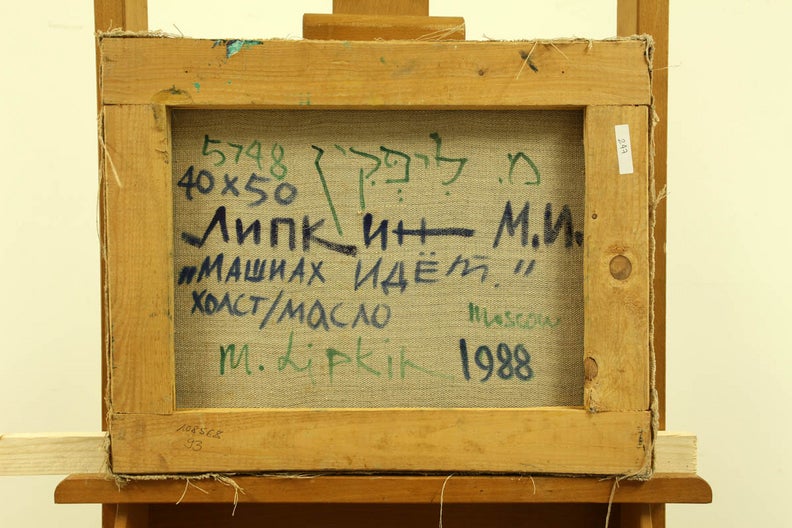 5748 מ. ליפקין
40×50
ЛИПКИН М.И.
„МАШИАХ ИДЁТ."
ХОЛСТ/МАСЛО
Moscow
M. Lipkin 1988
247
108568
93